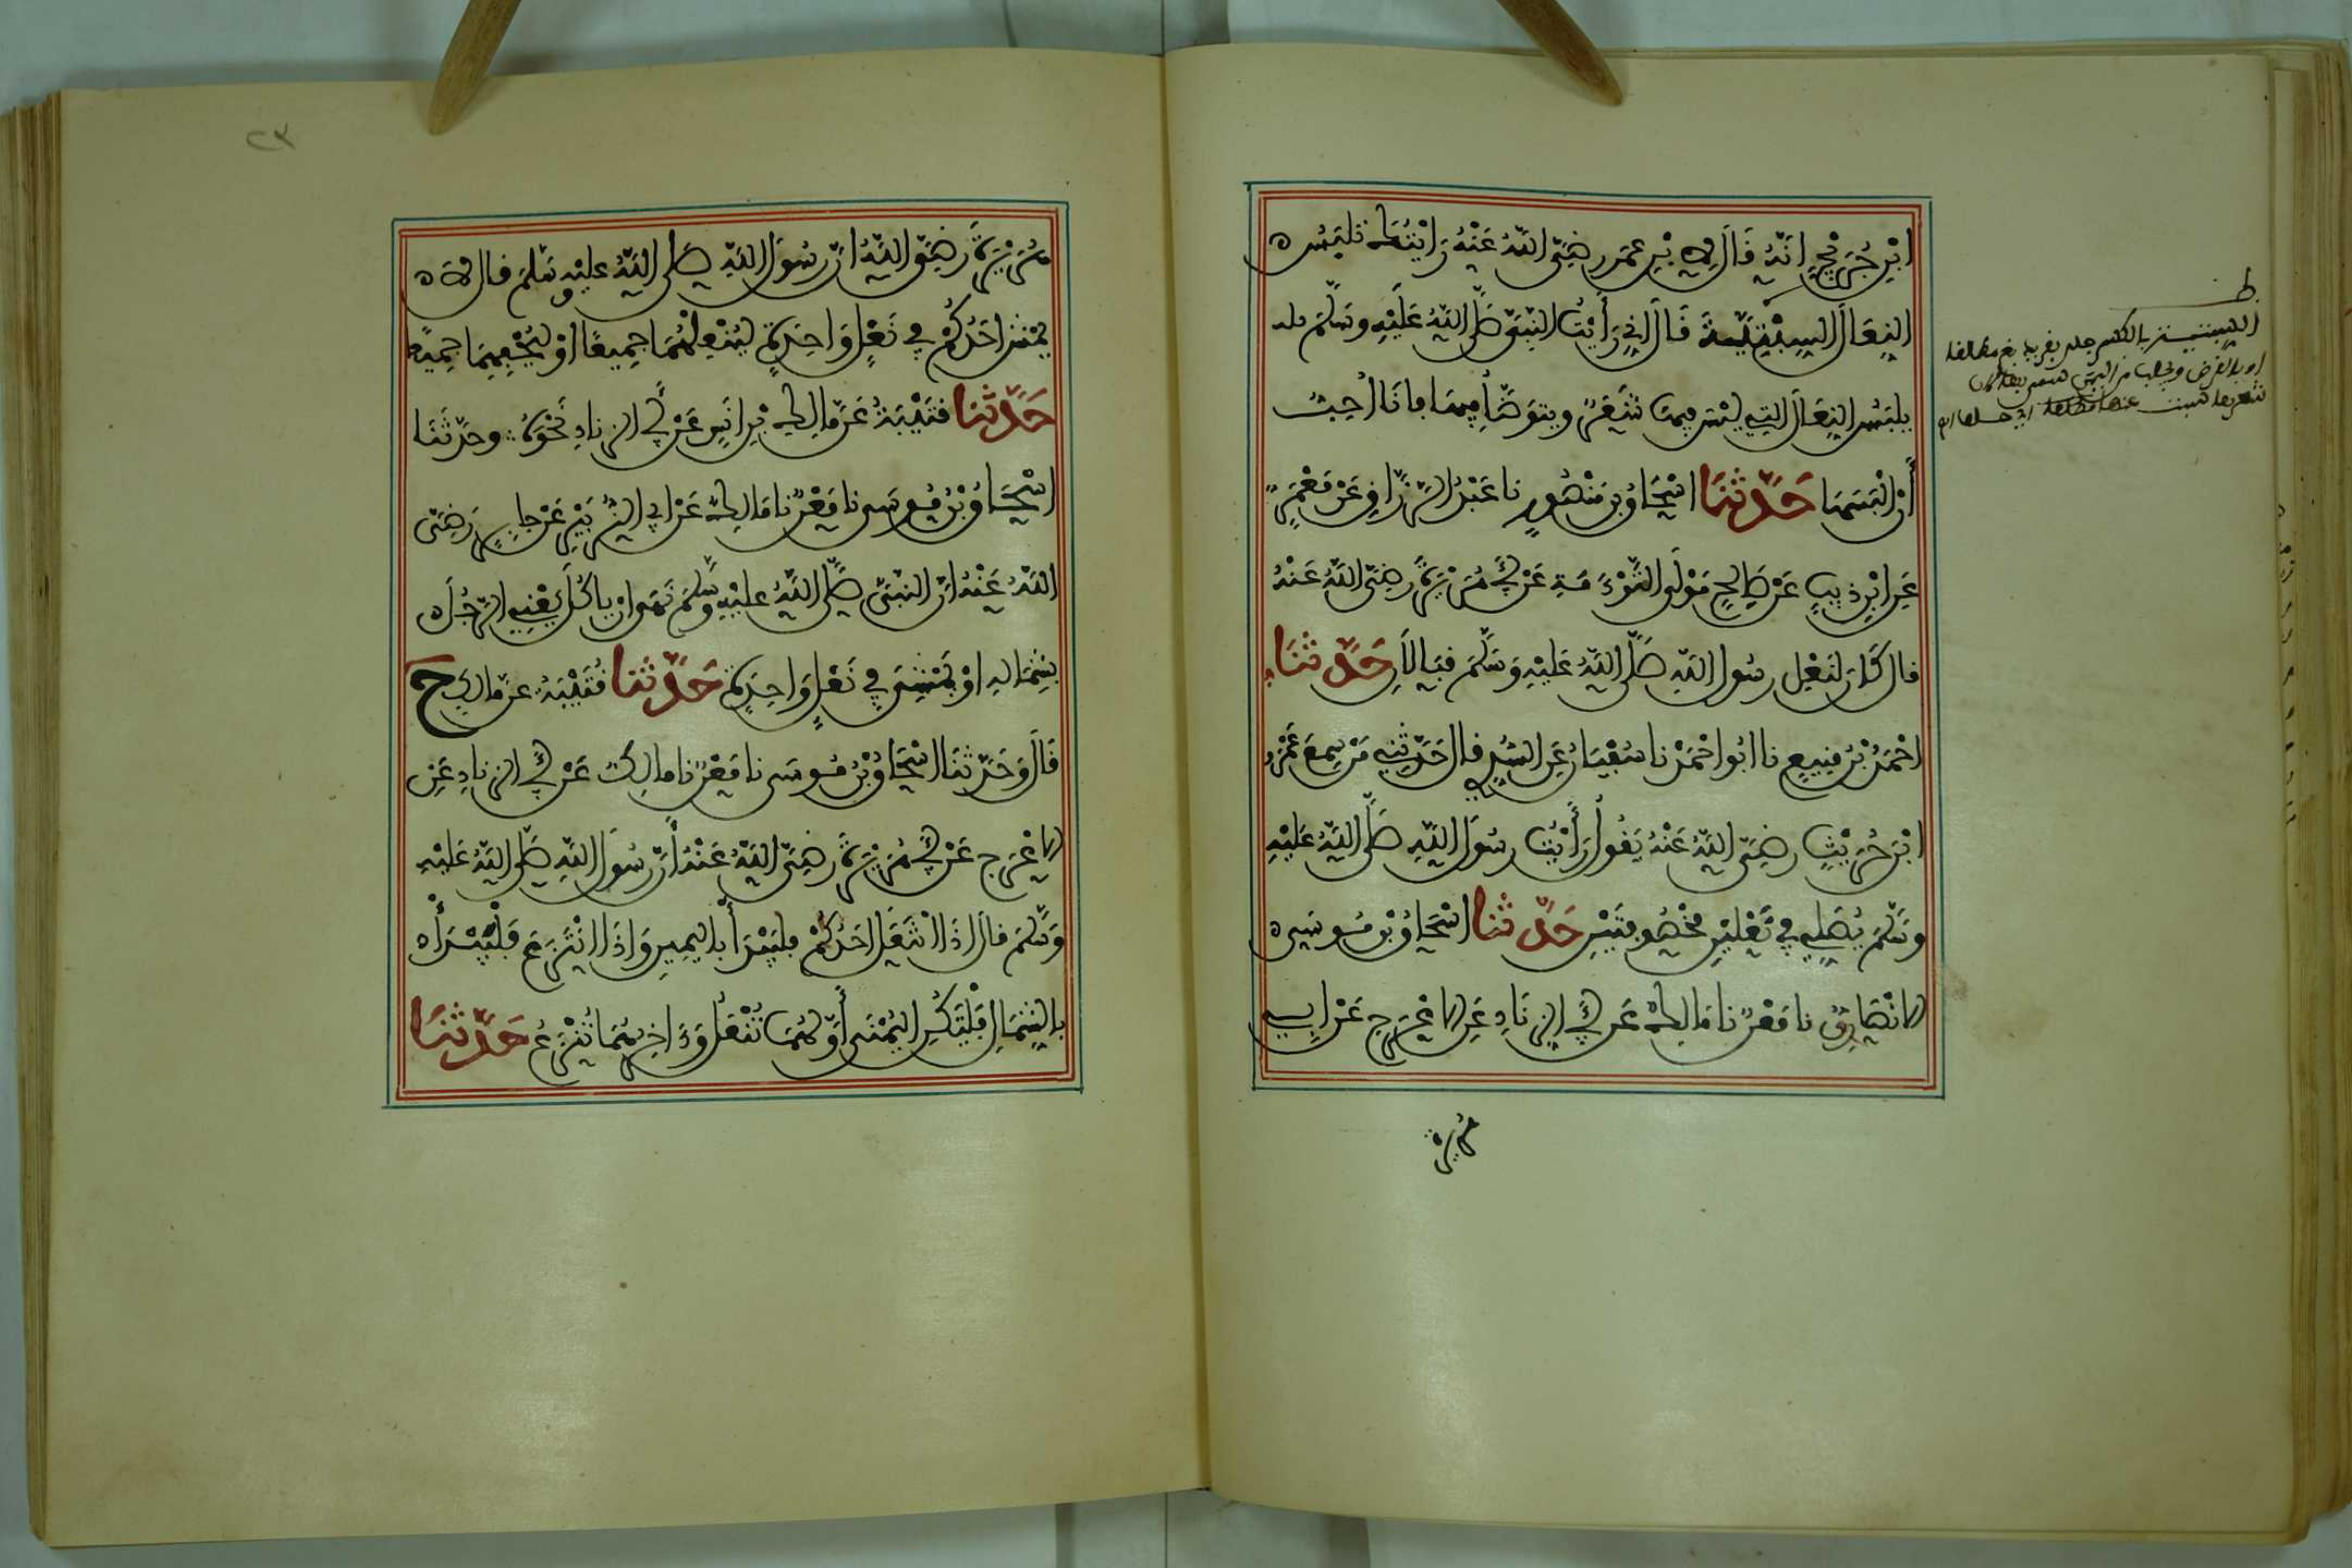 ابْنِ جُرَيْجٍ اَنَّهُ قَالَ لِابْنِ عمَرَ رضِيَ اللهُ عَنْهُ رَايْتُكَ تلبَسُ
النِعَالَ السِبْتِيَّةَ قَالَ اِني رَأَيْتُ النبيَّ صَلَّى اللهُ عَلَيْهِ وسَلَّمَ
يلبَسُ النِعَالَ التِي ليْسَ فِيهَا شَعَرٌ ويتوَضَّأُ فِيهَا فانَا اُحِبُّ
أَنْ الْبَسَهَا حَدَّثَنَا اسْحَاقُ بن مَنْصُورٍ نا عَبْدُ الرَّزَّاقِ عَنْ مَعْمَرٍ
عَنِ ابْنِ ذيبٍ عَنْ صَالِحٍ مَوْلَى التَّوْءَمَةِ عَنْ أَبِي هُرَيْرَةَ رضِيَ اللهُ عَنْهُ
قال كَانَ لنَعْلِ رسُول اللهِ صَلَّى اللهُ عَلَيْهِ وَسَلَّمَ قِبَالَانِ حَدَّثنَا
احْمَدُ بْنُ مَنِيعٍ نا ابُو احْمَدَ نا سُفْيَانُ عَنِ السُّدِّي قال حَدَّثنِي مَنْ سَمِعَ عَمْرَو
ابْنَ حُرَيْثٍ رضِيَ اللهُ عَنْهُ يَقُولُ رَأَيْتُ رسُولَ اللهِ صَلَّى اللهُ عَلَيْهِ
وسَلَّمَ يُصَلِّي فِي نَعْلَيْنِ مَخْصُوفتَيْنِ حَدَّثنا اسْحَاقُ بْنُ مُوسَى
الانْصَارِيُّ نا مَعْنٌ نا مَالِكٌ عَن أَبِي الزنَادِ عَنِ الاعْرَجِ عَنْ ابِي
هُريرة
٢٣
هُرَيْرَةَ رَضِيَ اللهُ انَّ رسُولَ اللهِ صَلى اللهُ عليْهِ وسَلّمَ قال لا
يَمْشِيَنَّ احَدُكُمْ فِي نَعْلٍ وَاحِدَةٍ ليُنْعِلْهُمَا جمِيعًا اوْ ليُحْفِهِمَا جمِيعًا
حَدَّثنَا قتَيْبَةُ عَن مالِك بْن انَسٍ عَنْ أَبِي الزنادِ نَحْوَهُ وحدَّثَنَا
اسْحَاقُ بْنُ مُوسَى نا مَعْنٌ نا مَالِكٌ عَنْ ابِي الزُّبَيْرِ عَنْ جابِرٍ رَضِيَ
اللهُ عَنْهُ انَّ النبيَّ صَلَّى اللهُ عليْهِ وسَلَّمَ نَهَى انْ ياكُلَ يَعْنِي الرَّجُلَ
بِشِمَالِهِ اوْ يَمْشِيَ فِي نَعْلٍ وَاحِدَةٍ حَدَّثنا قُتَيْبَةُ عَن مالِكٍ ح
قَالَ وَحَدَّثنَا اسْحَاقُ بْنُ مُوسَى نا مَعْنٌ نا مالِكٌ عَنْ أَبِي الزنادِ عَنِ
الاعْرَجِ عَنْ أَبِي هُرَيْرَةَ رضِيَ اللهُ عَنْهُ أَنَّ رسُولَ اللهِ صَلَّى اللهُ عَلَيْهِ
وَسَلَّمَ قالَ اذَا انْتَعَلَ احَدُكُمْ فليَبْدَأْ باليَمِينِ وَاذَا انْتَزَعَ فَلْيَبْدَأْ
بالشِمَالِ فَلْتَكُنِ اليُمْنَى أَوَّلهُمَا تُنْعَلُ وَءَاخِرهُمَا تُنْزَعُ حَدَّثنَا